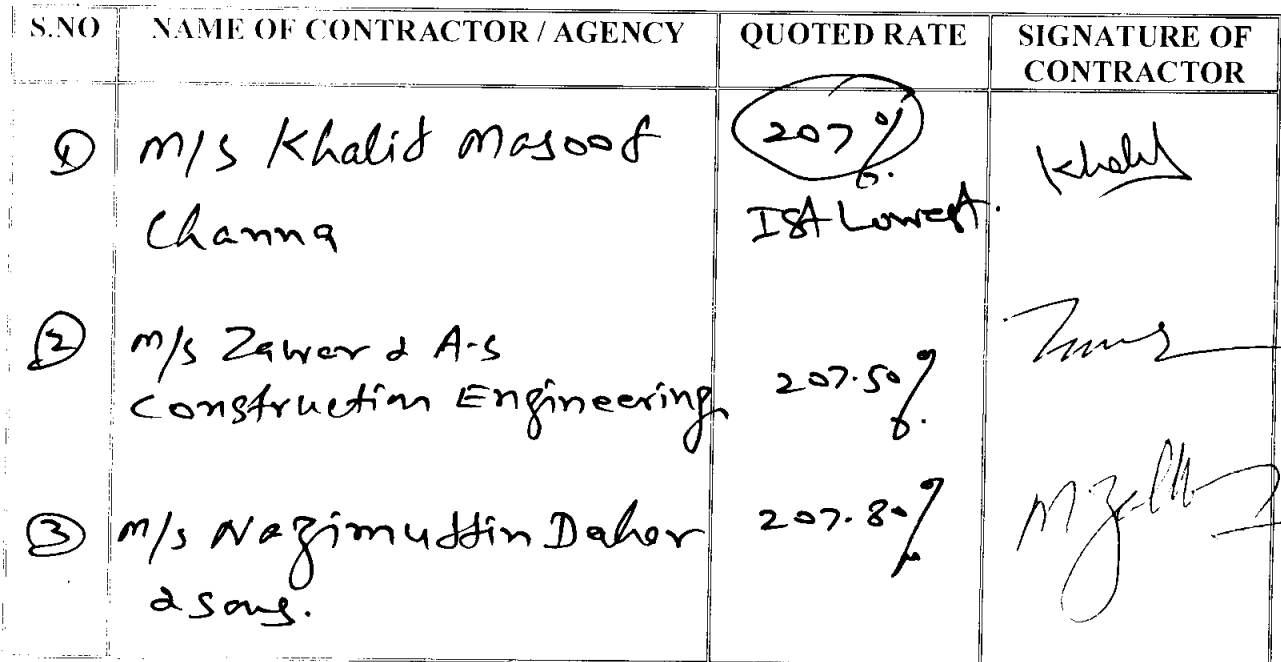 S.NO NAME OF CONTRACTOR / AGENCY QUOTED RATE SIGNATURE OF
CONTRACTOR
① M/S Khalid Masood 207% Khalid
Channa Ist Lowest.
② M/s Zawar & A-s
Construction Engineering 207.50%
③ M/s Nazimuddin Daher 207.80%
& sons.